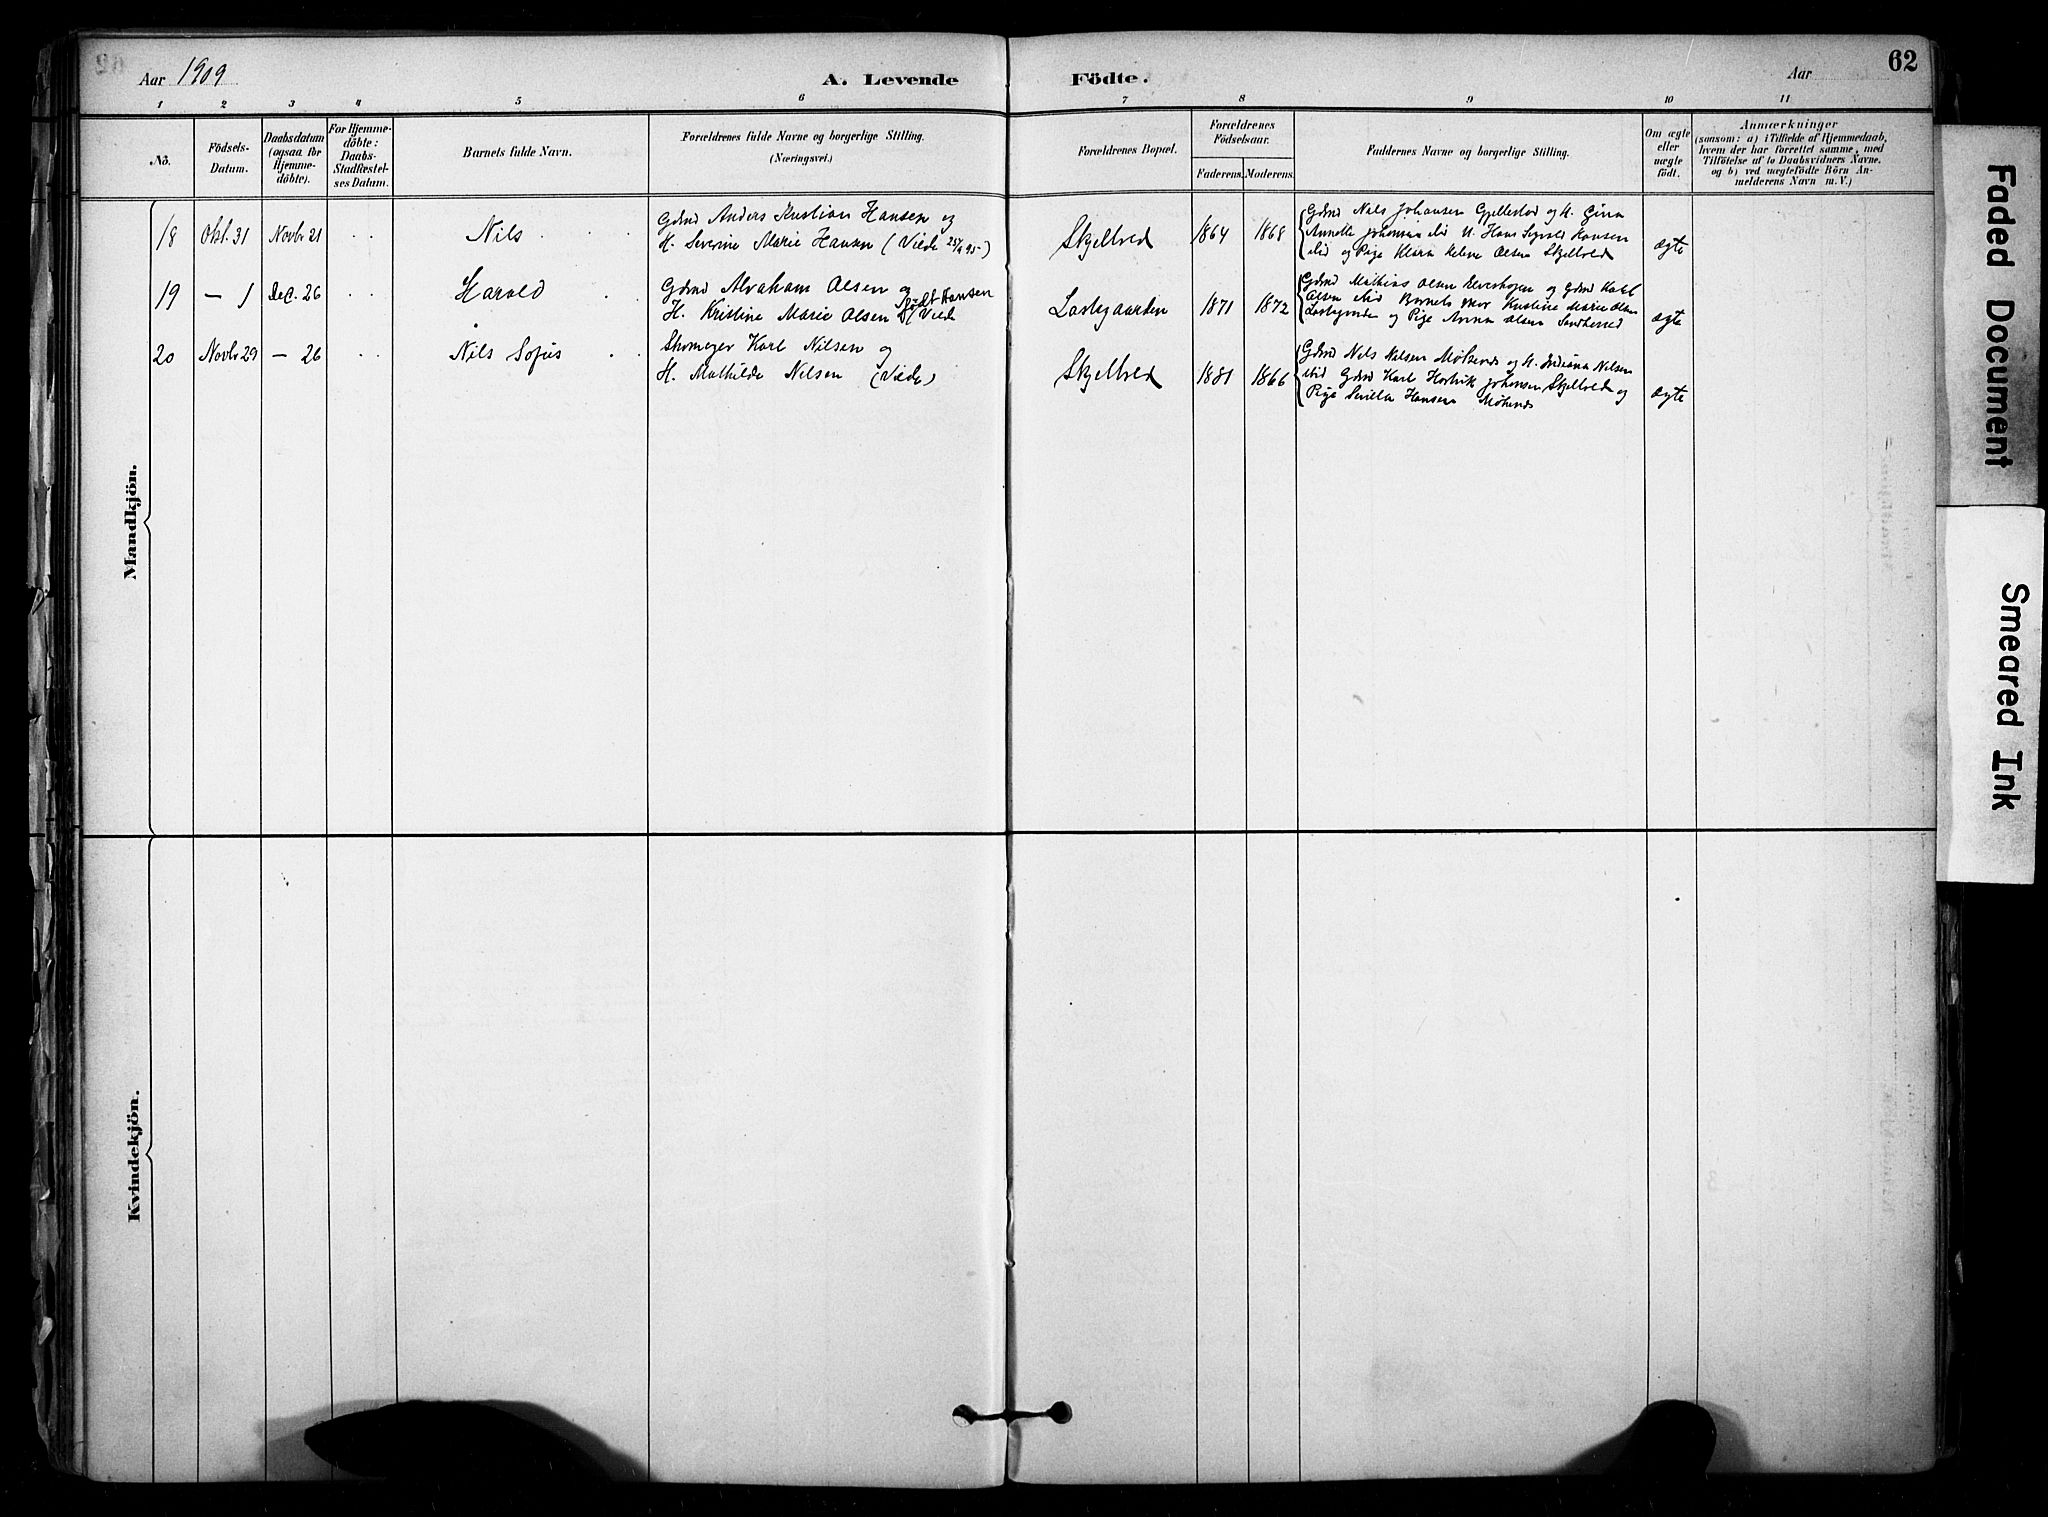 Aar 1909
A. Levende Födte.
Aar
62
1 2 3 4 5 6 7 8 9 10 11
Nö.
Födsels-
Datum.
Daabsdatum
(ogsaa for
Hjemme-
döbte).
For Hjemme-
döbte:
Daabs-
Stadfæstel-
ses Datum.
Barnets fulde Navn.
Forældrenes fulde Navne og borgerlige Stilling.
(Næringsvei.)
Forældrenes Bopæl.
Forældrenes
Födselsaar.
Faderens. Moderens.
Faddernes Navne og borgerlige Stilling.
Om ægte
eller
uægte
födt.
Anmærkninger
(saasom: a) i Tilfælde af Hjemmedaab,
hvem der har forrettet samme, med
Tilföielse af to Daabsvidners Navne,
og b) ved uægtefödte Börn An-
melderens Navn m. V.)
Mandkjön.
18 Okt. 31 Novbr 21 Nils
Gdmd Anders Kristian Hansen og
H. Severine Marie Hansen (Viede 25/4 95)
Skjelbred 1864 1868
Gdmd Nils Johansen Gjellestad og H. Gina
Annette Johansen ibid U. Hans Sigvald Hansen
ibid og Pige Klara Helene Olsen Skjelbred
ægte
19 — 1 Dec. 26 Harald
Gdmd Abraham Olsen og
H. Kristine Marie Olsen født Hansen (Viede
1871 1872
Gdmd Mathias Olsen og Gdmd
Olsen ibid Barnets Mor Kristine Marie Olsen
og Pige Anna Olsen
ægte
20 Novbr 29 — 26 Nils Sofus
Skomager Karl Nilsen og
H. Mathilde Nilsen (Viede)
Skjelbred 1881 1866
Gdmd Nils Nilsen og H. Nilsen
ibid Gdmd Karl Johansen Skjelbred og
Pige Hansen
ægte
Kvindekjön.
Faded Document
Smeared Ink